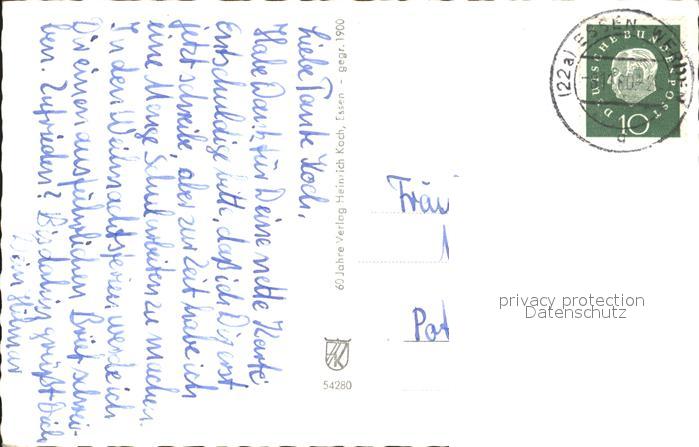 Liebe Tante Koch,
Habe Dank für Deine nette Karte
Entschuldige bitte, daß ich Dir erst
jetzt schreibe, aber zur Zeit habe ich
eine Menge Schularbeiten zu machen.
In den Weihnachtsferien werde ich
Dir einen ausführlichen Brief schrei-
ben. Zufrieden? Bis dahin grüßt Dich
Dein Hilmar
60 Jahre Verlag Heinrich Koch, Essen - gegr. 1900
54280
(22a) ESSEN-WERDEN
DEUTSCHE BUNDESPOST
10
Fräu
Pot
privacy protection
Datenschutz